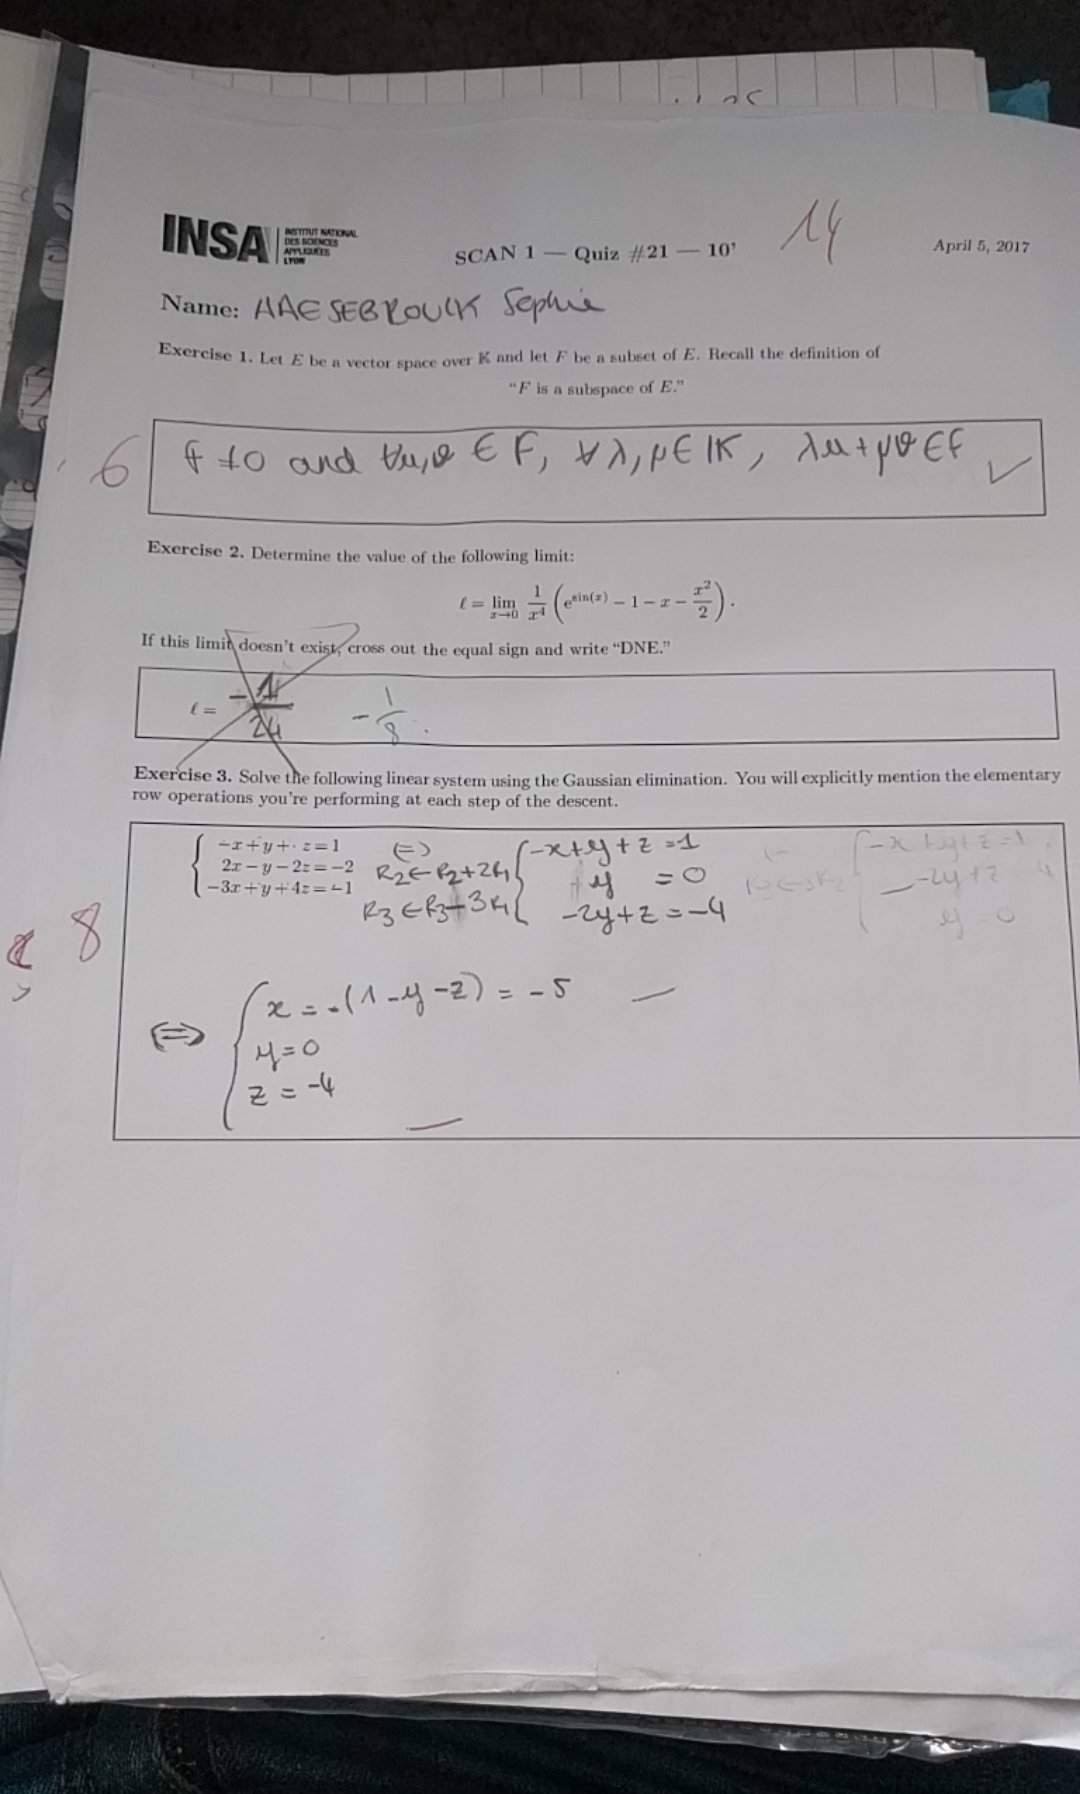 INSA INSTITUT NATIONAL DES SCIENCES APPLIQUÉES LYON
SCAN 1 — Quiz #21 — 10'
14
April 5, 2017
Name: HAESEBROUCK Sophie
Exercise 1. Let E be a vector space over K and let F be a subset of E. Recall the definition of
"F is a subspace of E."
6
F ≠ 0 and ∀u,v ∈ F, ∀λ,μ ∈ K, λu+μv ∈ F ✓
Exercise 2. Determine the value of the following limit:
ℓ = lim x→0 1/x⁴ (e^sin(x) − 1 − x − x²/2).
If this limit doesn't exist, cross out the equal sign and write "DNE."
ℓ = -1/24 -1/8.
Exercise 3. Solve the following linear system using the Gaussian elimination. You will explicitly mention the elementary
row operations you're performing at each step of the descent.
−x + y + z = 1 ⇔ -x+y+z=1
2x − y − 2z = −2 R2←R2+2R1 +y =0
−3x + y + 4z = −1 R3←R3-3R1 -2y+z=-4
8
x = -(1-y-z) = -5
⇔ y=0
z = -4